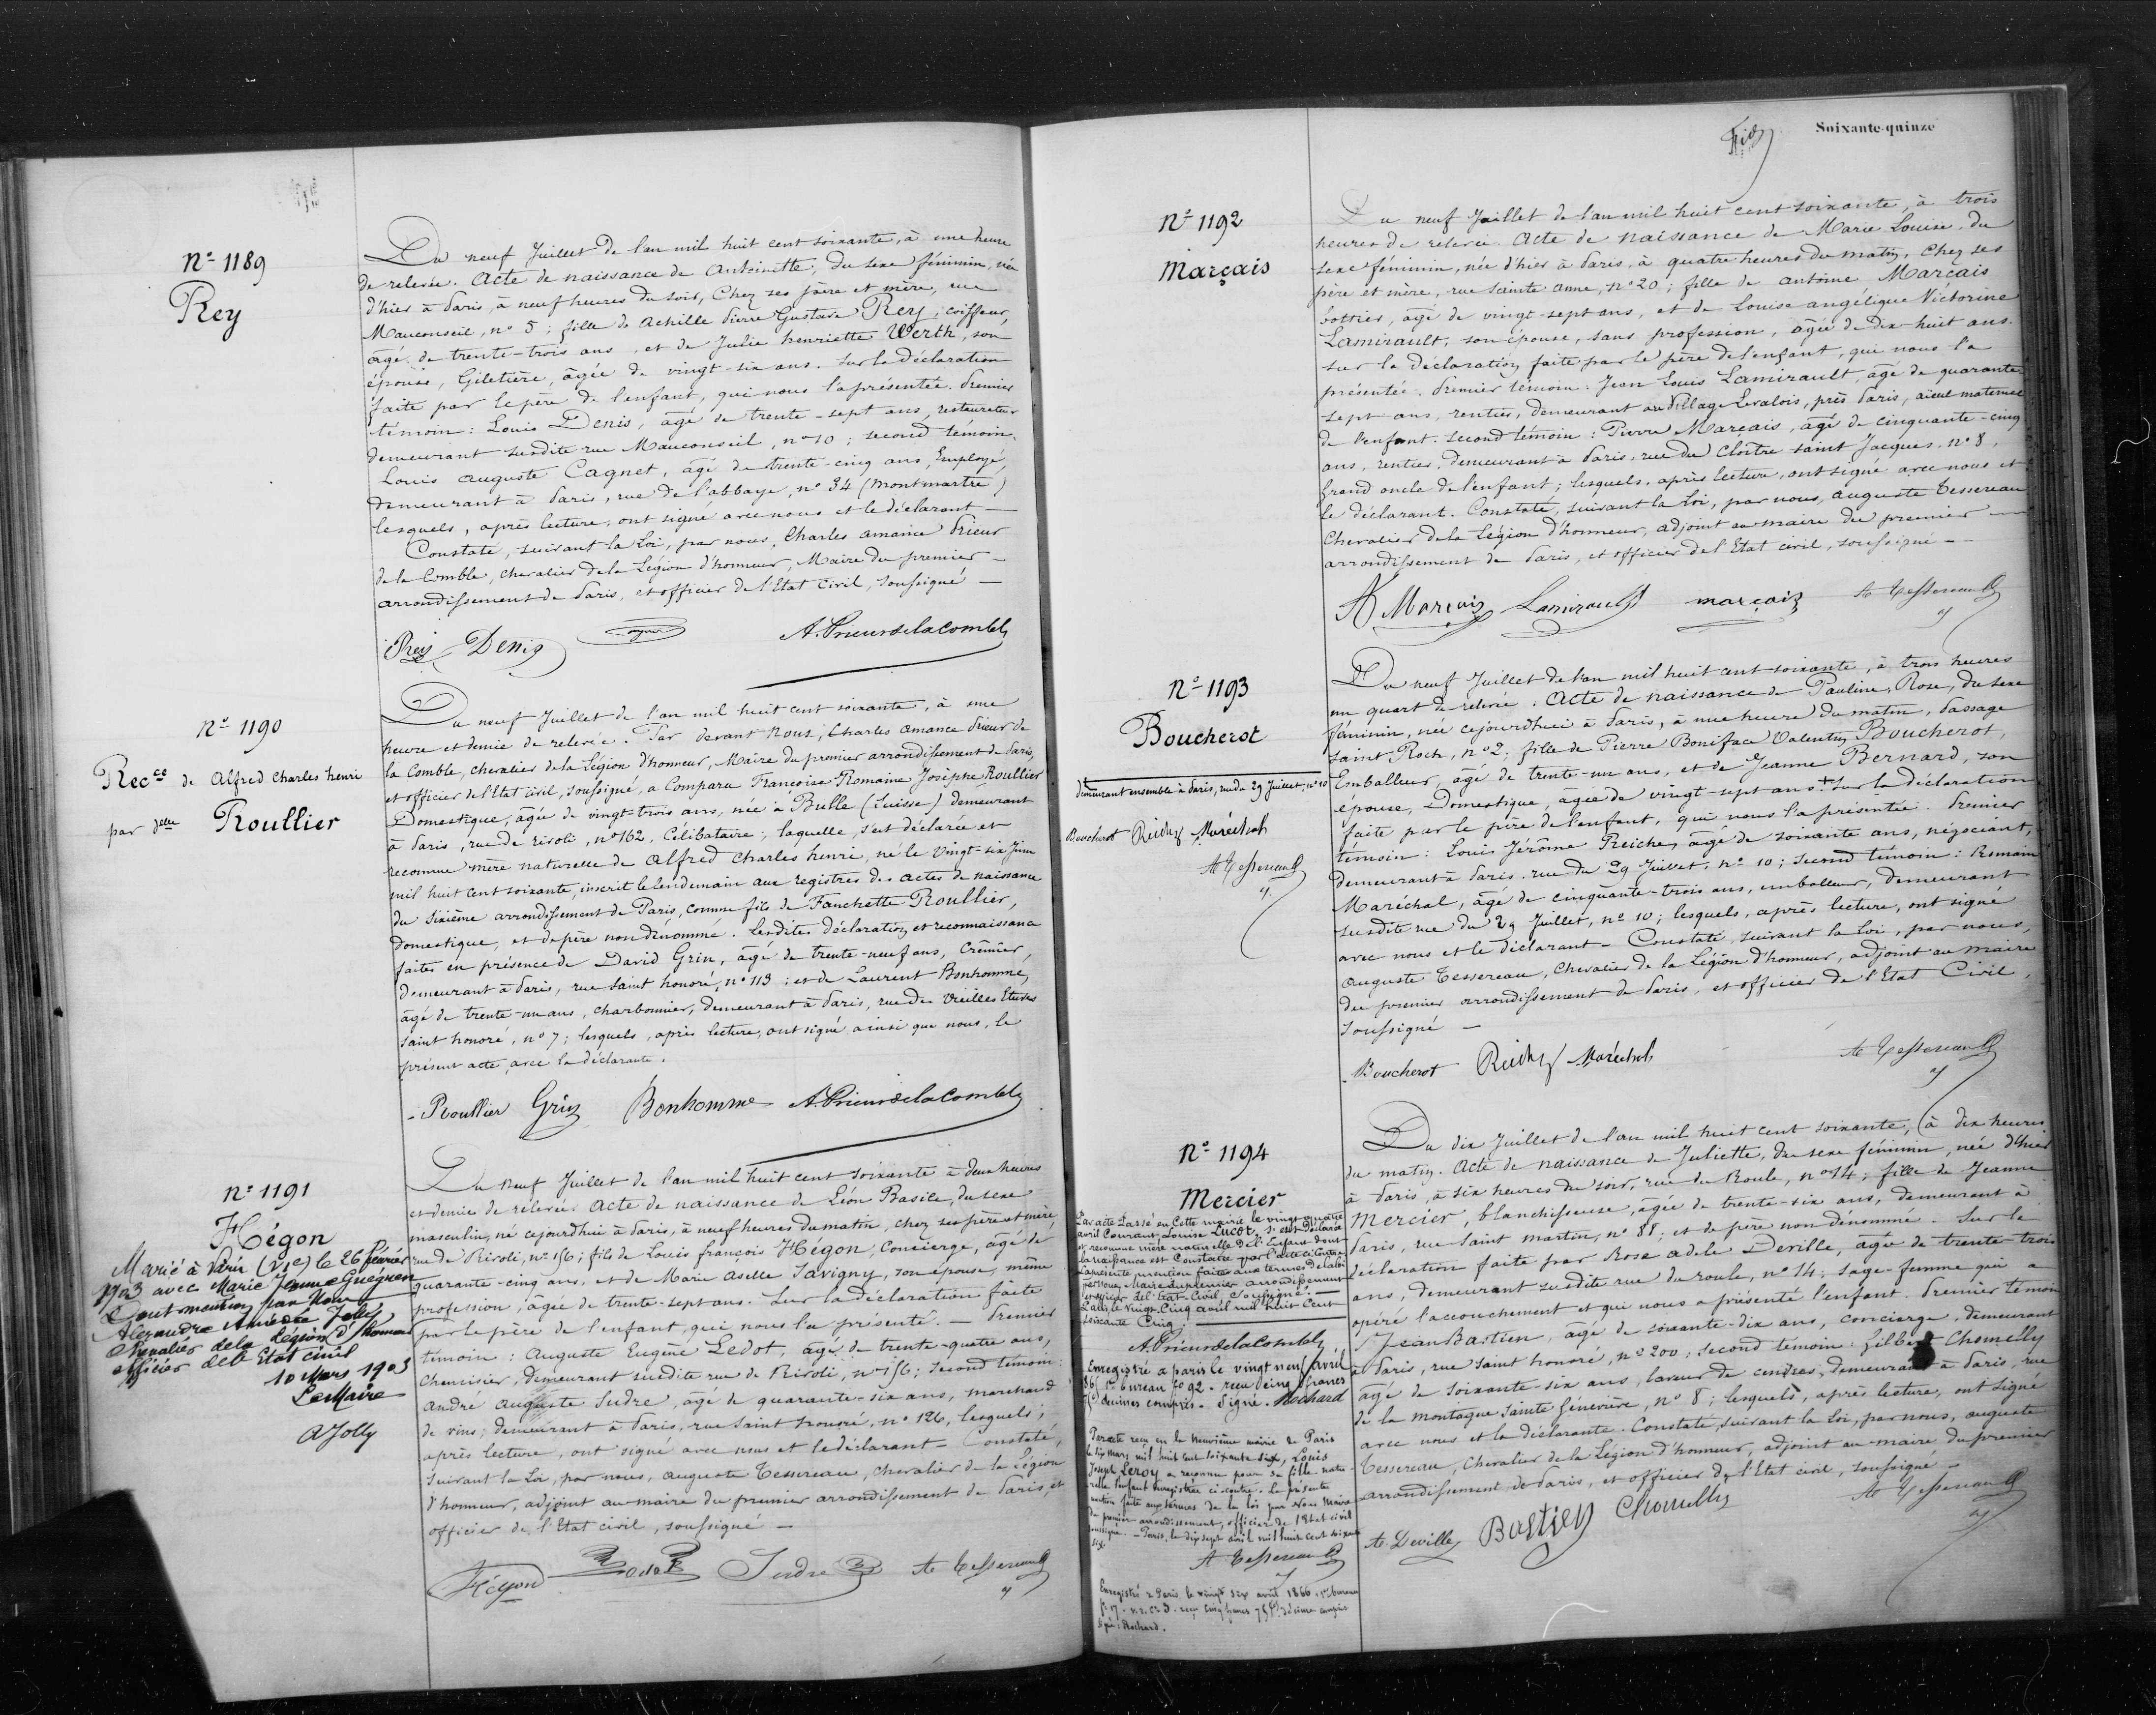 N° 1189
Rey
Du neuf Juillet de l'an mil huit cent soixante, à une heure
de relevée. Acte de naissance de Antoinette, du sexe féminin, née
d'hier à Paris, à neuf heures du soir, chez ses père et mère, rue
Mauconseil, n° 5; fille de Achille Pierre Gustave Rey, coiffeur,
âgé de trente-trois ans, et de Julie henriette Werth, son
épouse, Giletière, âgée de vingt-six ans. Sur la déclaration
faite par le père de l'enfant, qui nous l'a présentée. Premier
témoin: Louis Denis, âgé de trente-sept ans, restaurateur
demeurant susdite rue Mauconseil, n° 10; second témoin.
Louis auguste Cagnet, âgé de trente-cinq ans, Employé,
demeurant à Paris, rue de l'abbaye, n° 34 (Montmartre)
lesquels, après lecture, ont signé avec nous et le déclarant —
Constaté, suivant la Loi, par nous, Charles amance Prieur
de la Comble, chevalier de la Légion d'honneur, Maire du premier —
arrondissement de Paris, et officier de l'Etat Civil, soussigné —
Rey Denis Cagnet A. Prieur de la Comble
N° 1190
Rec.ce de Alfred Charles henri
par delle Roullier
Du neuf Juillet de l'an mil huit cent soixante, à une
heure et demie de relevée. Par devant Nous, Charles amance Prieur de
la Comble, chevalier de la Légion d'honneur, Maire du premier arrondissement de Paris,
et officier de l'Etat civil, soussigné, a Comparu Françoise Romaine Josèphe Roullier
Domestique, âgée de vingt-trois ans, née à Bulle (Suisse) demeurant
à Paris, rue de rivoli, n° 162, Célibataire; laquelle s'est déclarée et
reconnue mère naturelle de Alfred Charles henri, né le Vingt-six Juin
mil huit cent soixante, inscrit le lendemain aux registres des actes de naissance
du Sixième arrondissement de Paris, comme fils de Fanchette Roullier,
domestique, et de père non dénommé. Lesdites déclaration et reconnaissance
faites en présence de David Grin, âgé de trente-neuf ans, Crêmier,
demeurant à Paris, rue saint honoré, n° 113; et de Laurent Bonhomme,
âgé de trente-un ans, charbonnier, demeurant à Paris, rue des Vieilles Etuves
saint honoré, n° 7; lesquels, après lecture, ont signé, ainsi que nous, le
présent acte, avec la déclarante.
Roullier Grin Bonhomme A. Prieur de la Comble
N° 1191
Hégon
Marié à Paris (VIe) le 26 février
1903 avec Marie Jeanne Gueguen
Dont mention par Nous
Alexandre Amédée Jolly
Chevalier de la Légion d'Honneur
officier de l'Etat civil
10 Mars 1903
Le Maire
A Jolly
Du Neuf Juillet de l'an mil huit cent soixante à deux heures
et demie de relevée. Acte de naissance de Léon Basile, du sexe
masculin, né cejourdhui à Paris, à neuf heures du matin, chez ses père et mère,
rue de Rivoli, n° 156; fils de Louis françois Hégon, Concierge, âgé de
quarante-cinq ans, et de Marie Aselle Savigny, son épouse, même
profession, âgée de trente-sept ans. Sur la déclaration faite
par le père de l'enfant, qui nous l'a présenté. — Premier
témoin: Auguste Eugène Ledot, âgé de trente-quatre ans,
Chemisier, demeurant susdite rue de Rivoli, n° 156; second témoin:
André auguste Sudre, âgé de quarante-six ans, marchand
de vins, demeurant à Paris, rue saint honoré, n° 126, lesquels,
après lecture, ont signé avec nous et le déclarant — Constaté,
suivant la Loi, par nous, auguste Tessereau, chevalier de la Légion
d'honneur, adjoint au maire du premier arrondissement de Paris, et
officier de l'Etat civil, soussigné —
Hégon Ledot Sudre Ate Tessereau
Soixante-quinze
N° 1192
Marçais
Du neuf Juillet de l'an mil huit cent soixante, à trois
heures de relevée. Acte de naissance de Marie Louise, du
sexe féminin, née d'hier à Paris, à quatre heures du matin, chez ses
père et mère, rue Sainte anne, n° 20; fille de Antoine Marçais
bottier, âgé de vingt-sept ans, et de Louise angélique Victorine
Lamirault, son épouse, sans profession, âgée de Dix-huit ans.
sur la déclaration faite par le père de l'enfant, qui nous l'a
présentée. Premier témoin: Jean Louis Lamirault, âgé de quarante-
sept ans, rentier, demeurant au Village Levalois, près Paris, aïeul maternel
de l'enfant. second témoin: Pierre Marçais, âgé de cinquante-cinq
ans, rentier, demeurant à Paris, rue du Cloître saint Jacques, n° 8,
Grand oncle de l'enfant; lesquels, après lecture, ont signé avec nous et
le déclarant. Constaté, suivant la Loi, par nous, auguste Tessereau
Chevalier de la Légion d'honneur, adjoint au maire du premier —
arrondissement de Paris, et officier de l'Etat civil, soussigné —
A Marçais Lamirault marçais Ate Tessereau
N° 1193
Boucherot
demeurant ensemble à Paris, rue du 29 Juillet, n° 10
Boucherot Reiche Maréchal
Ate Tessereau
Du neuf Juillet de l'an mil huit cent soixante, à trois heures
un quart de relevée. Acte de naissance de Pauline, Rose, du sexe
féminin, née cejourdhui à Paris, à une heure du matin, Passage
saint Roch, n° 2; fille de Pierre Boniface Valentin Boucherot,
Emballeur, âgé de trente-un ans, et de Jeanne Bernard, son
épouse, Domestique, âgée de vingt-sept ans + sur la déclaration
faite par le père de l'enfant, qui nous l'a présentée. Premier
témoin: Louis Jérôme Reiche, âgé de soixante ans, négociant,
demeurant à Paris, rue du 29 Juillet, n° 10; second témoin: Romain
Maréchal, âgé de cinquante-trois ans, emballeur, demeurant
susdite rue du 29 Juillet, n° 10; lesquels, après lecture, ont signé
avec nous et le déclarant — Constaté, suivant la Loi, par nous,
auguste Tessereau, Chevalier de la Légion d'honneur, adjoint au maire
du premier arrondissement de Paris, et officier de l'Etat Civil,
soussigné —
Boucherot Reiche Maréchal Ate Tessereau
N° 1194
Mercier
Par acte passé en cette mairie le vingt quatre
avril Courant, Louise Lucot, s'est déclarée
et reconnue mère naturelle de l'Enfant dont
la naissance est Constatée par l'acte ci Contre
La présente mention faite aux termes de la loi
par nous, Maire du premier arrondissement
officier de l'Etat-Civil, soussigné. —
Paris, le vingt Cinq avril mil huit Cent
soixante Cinq.
A. Prieur de la Comble
Enregistré à paris le vingt neuf avril
1865 1er bureau fo 92. reçu cinq francs
décimes compris. Signé. Rochard
Par acte reçu en la Neuvième mairie de Paris
le dix mars mil huit cent soixante six, Louis
Joseph Leroy a reconnu pour sa fille natu-
relle l'enfant enregistrée ci-contre. La présente
mention faite aux termes de la loi par Nous Maire
du premier arrondissement, officier de l'état civil
soussigné. — Paris, le dix sept avril mil huit cent soixante
six.
A Tessereau
Enregistré à Paris le vingt six avril 1866. 1er bureau
fo 17. v. c. 3. reçu cinq francs 75c décime compris
Signé: Rochard.
Du dix Juillet de l'an mil huit cent soixante, à dix heures
du matin. Acte de naissance de Juliette, du sexe féminin, née d'hier
à Paris, à six heures du soir, rue du Roule, n° 14; fille de Jeanne
Mercier, blanchisseuse, âgée de trente-six ans, demeurant à
Paris, rue Saint martin, n° 88; et de père non dénommé. Sur la
déclaration faite par Rose adèle Deville, âgée de trente-trois
ans, demeurant susdite rue du roule, n° 14; sage-femme qui a
opéré l'accouchement et qui nous a présenté l'enfant. Premier témoin
Jean Bastien, âgé de soixante-dix ans, concierge, demeurant
à Paris, rue saint honoré, n° 200; second témoin: Gilbert Chomelly
âgé de soixante-six ans, laveur de cendres, demeurant à Paris, rue
de la montagne Sainte Géneviève, n° 8; lesquels, après lecture, ont signé
avec nous et la déclarante. Constaté, suivant la Loi, par nous, auguste
Tessereau, Chevalier de la Légion d'honneur, adjoint au maire du premier
arrondissement de Paris, et officier de l'Etat civil, soussigné —
Ate Deville Bastien Chomelly Ate Tessereau